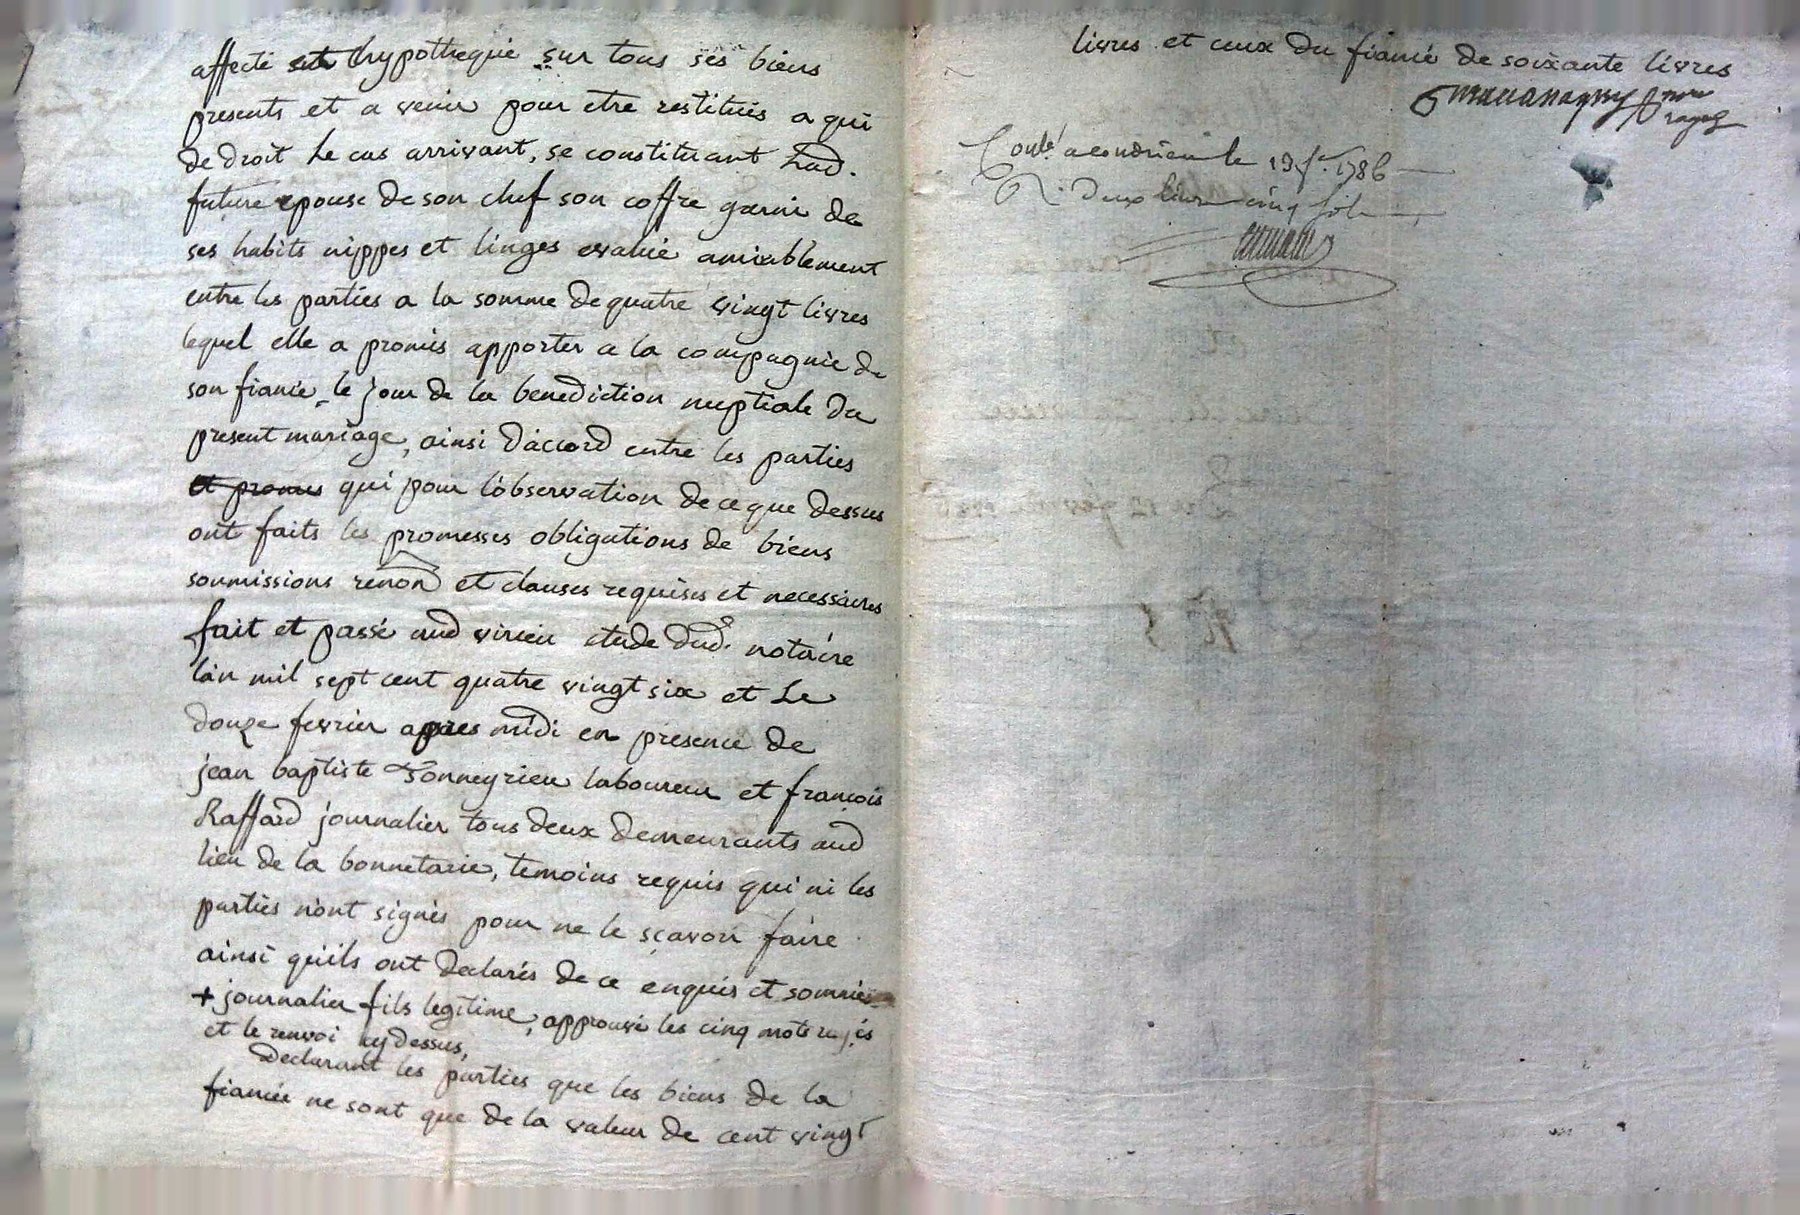 affecté et hypothequé sur tous ses biens
presents et a venir pour etre restitués a qui
de droit Le cas arrivant, se constituant Lad.
future epouse de son chef son coffre garni de
ses habits nippes et linges evalué amiablement
entre les parties a la somme de quatre vingt livres
lequel elle a promis apporter a la compagnie de
son fiancé, le jour de la benediction nuptiale du
present mariage, ainsi d'accord entre les parties
et promis qui pour lobservation de ce que dessus
ont faits les promesses obligations de biens
soumissions renon et clauses requises et necessaires
fait et passé aud virieu etude dud. notaire
lan mil sept cent quatre vingt six et Le
douze fevrier apres midi en presence de
jean baptiste Vonneyrieu laboureur et francois
Raffard journalier tous deux demeurants aud
lieu de la bonnetarie, temoins requis qui ni les
parties n'ont signés pour ne le sçavoir faire
ainsi quils ont declarés de ce enquis et sommés
+ journalier fils legitime, approuvé les cinq mots rayés
et le renvoi cy dessus,
Declarant les parties que les biens de la
fiancée ne sont que de la valeur de cent vingt
livres et ceux du fiancé de soixante livres
Conlé a condrieu le 19 f. 1786
R. deux livres cinq sols